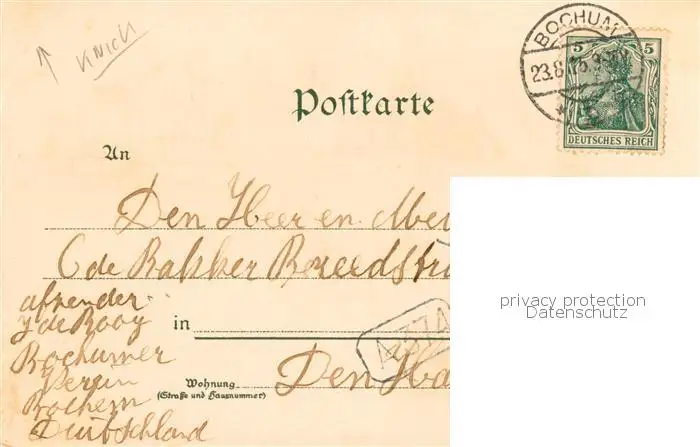 KNicK
BOCHUM
5 5
23.8.
DEUTSCHES REICH
Postkarte
An
Den Heer en Mev
C de Bakker Breedstra
afzender
J de Rooy
in
Bochumer
Verein
Bochem
Duitschland
Wohnung
(Straße und Hausnummer)
Den Ha
privacy protection
Datenschutz